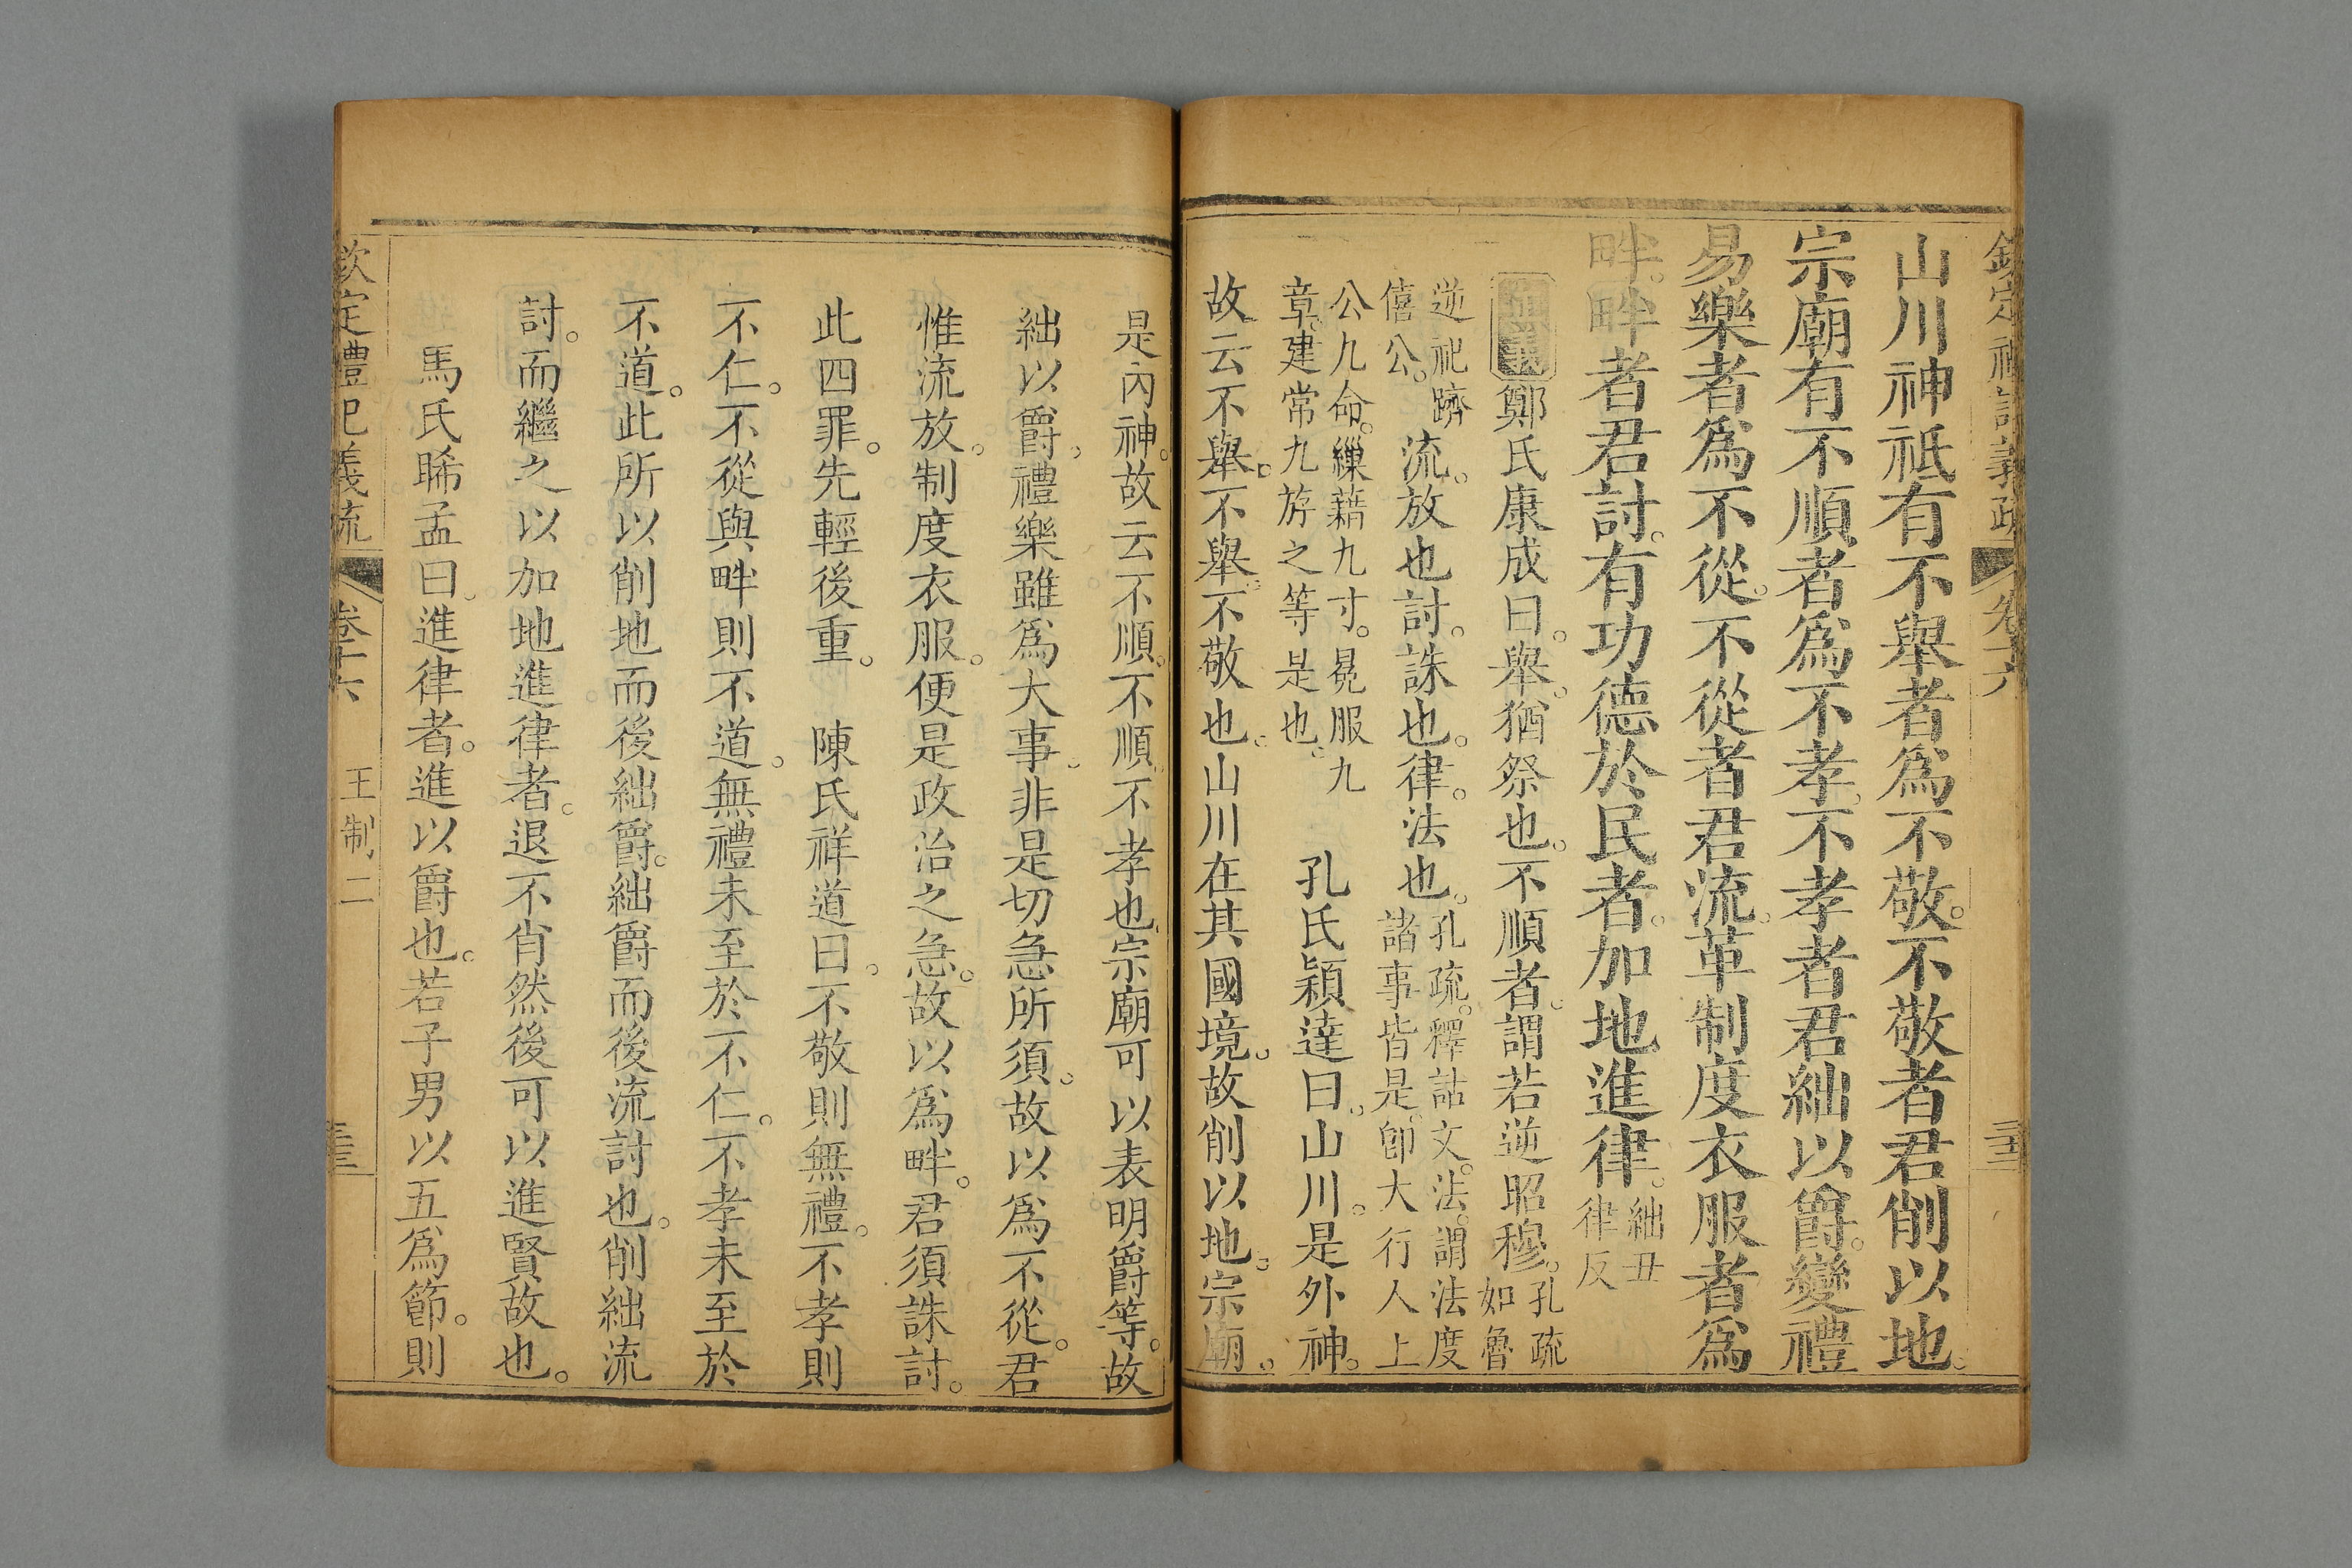 欽定禮記義疏 卷十六
山川神祇有不舉者爲不敬。不敬者君削以地。
宗廟有不順者爲不孝。不孝者君絀以爵。變禮
易樂者爲不從。不從者君流。革制度衣服者爲
畔。畔者君討。有功德於民者。加地進律。絀丑
律反
鄭氏康成曰。舉。猶祭也。不順者。謂若逆昭穆。孔疏
如魯
逆祀躋
僖公。流。放也。討。誅也。律。法也。孔疏。釋詁文。法。謂法度
諸事皆是。卽大行人上
公九命。繅藉九寸。冕服九
章。建常九斿之等是也。 孔氏穎達曰。山川。是外神。
故云不舉。不舉。不敬也。山川在其國境。故削以地。宗廟。
是內神。故云不順。不順。不孝也。宗廟可以表明爵等。故
絀以爵。禮樂雖爲大事。非是切急所須。故以爲不從。君
惟流放。制度衣服。便是政治之急。故以爲畔。君須誅討。
此四罪。先輕後重。 陳氏祥道曰。不敬則無禮。不孝則
不仁。不從與畔則不道。無禮未至於不仁。不孝未至於
不道。此所以削地而後絀爵。絀爵而後流討也。削絀流
討。而繼之以加地進律者。退不肖然後可以進賢故也。
馬氏睎孟曰。進律者。進以爵也。若子男以五爲節。則
欽定禮記義疏 卷十六 王制二